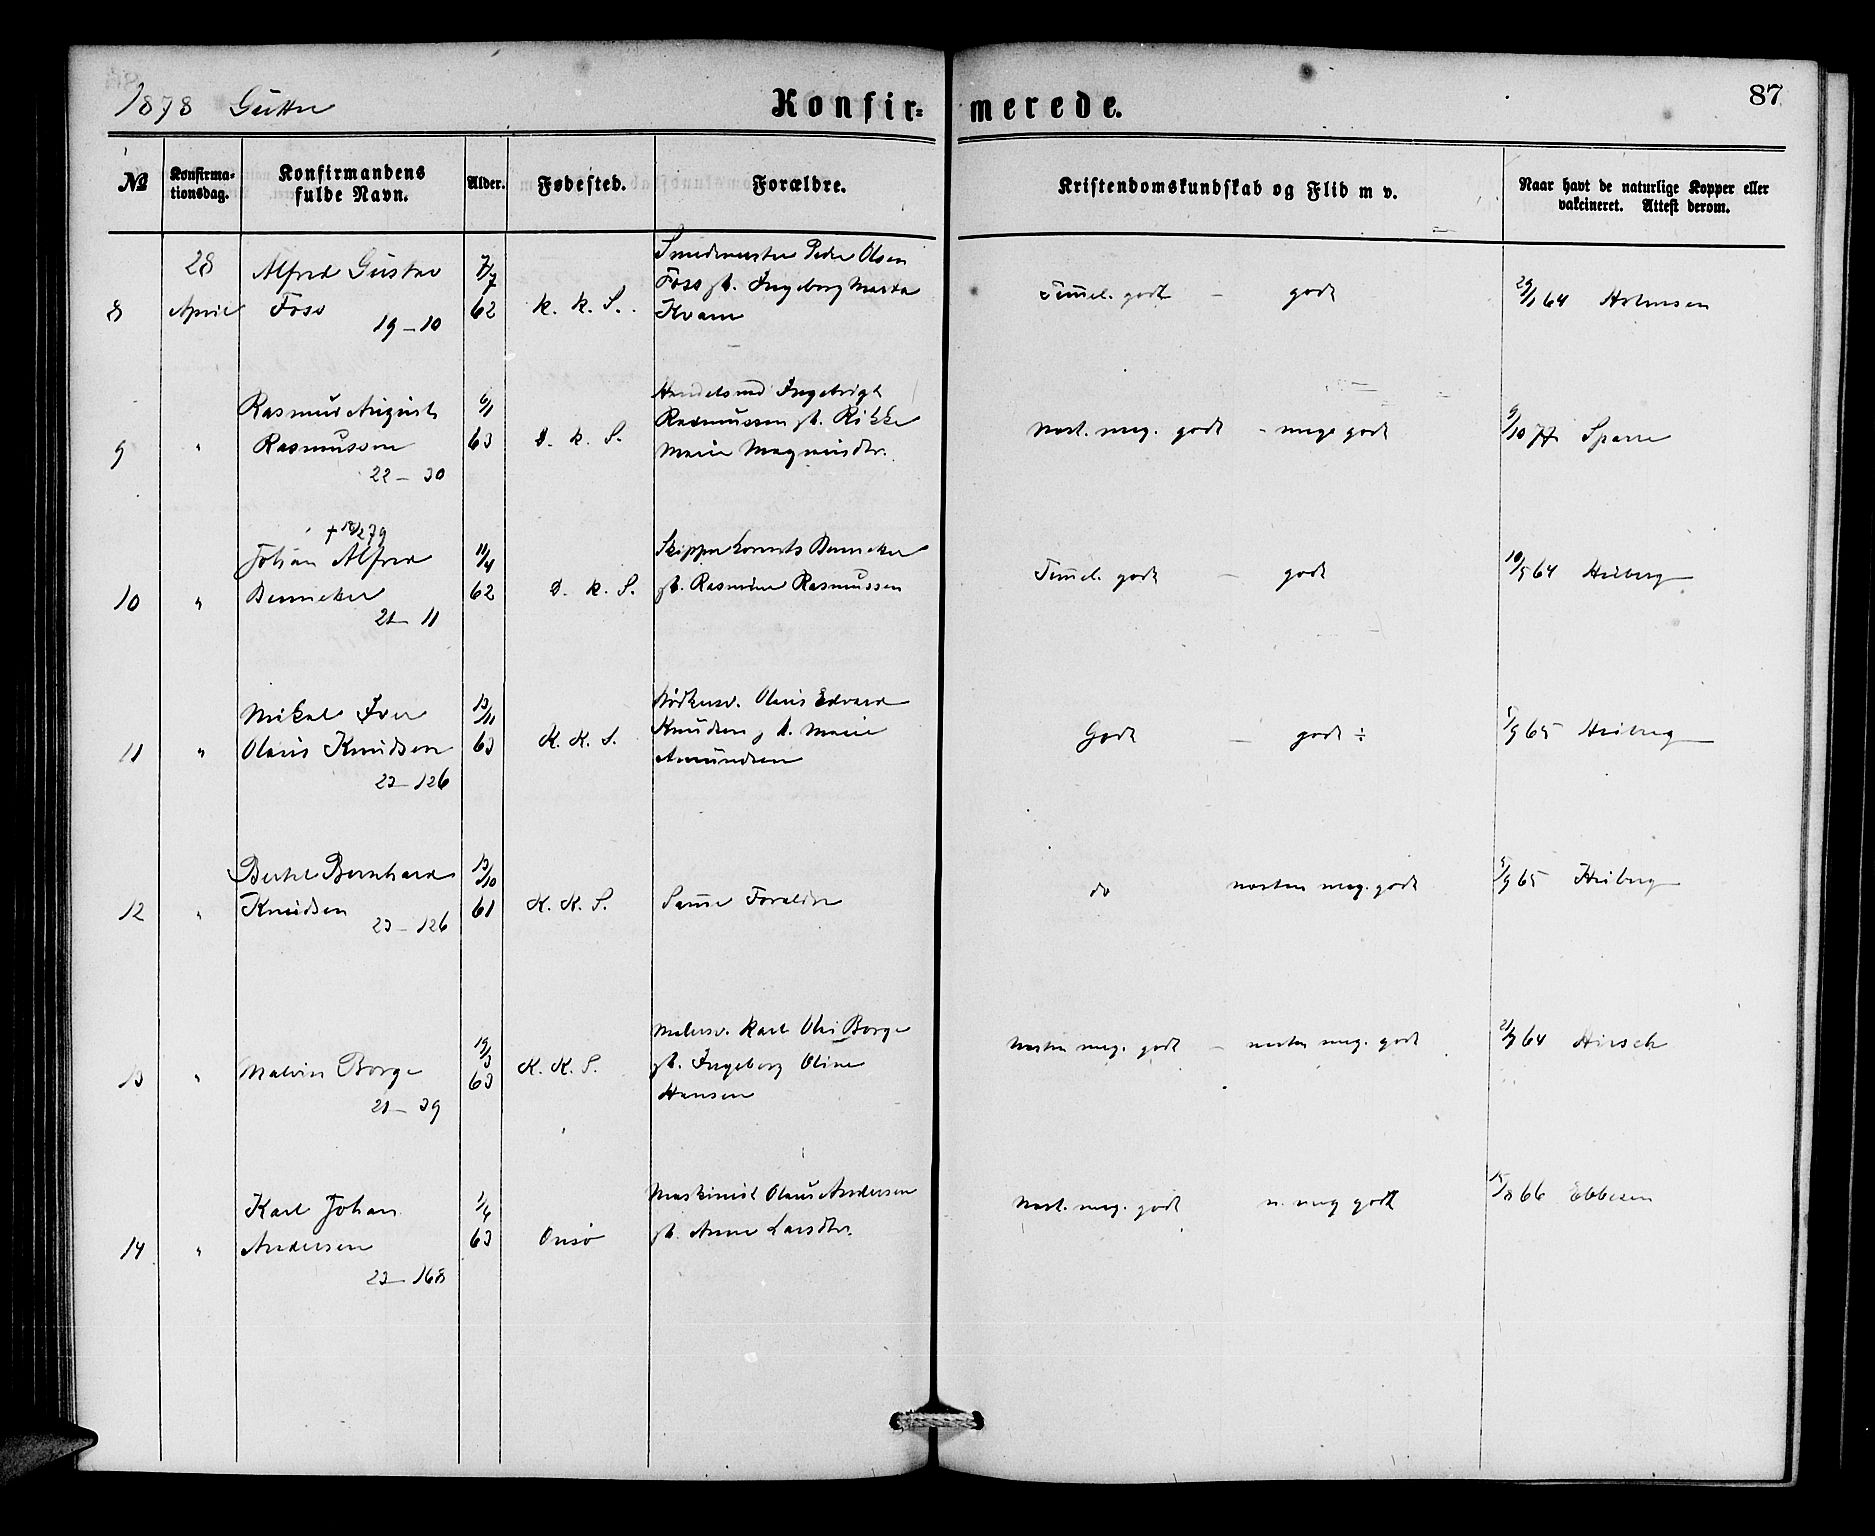 1878 Gutter
Konfir=merede.
87
№
Konfirma-
tionsdag.
Konfirmandens
fulde Navn.
Alder.
Fødested.
Forældre.
Kristendomskundskab og Flid m v.
Naar havt de naturlige Kopper eller
vakcineret. Attest derom.
8
28
April
Alfred Gustav
Foss
19-10
7/7
62
k. k. S.
Smedmester Peder Olsen
Foss f. Ingeborg Marta
Kvam
Temel. godt - godt
29/1 64
9
"
Rasmus August
Rasmussen
22-30
6/1
63
D. k. S.
Ingebrigt
Rasmussen f. Rikke
Marie Magnusdtr.
Næst. meg. godt - meget godt
9/10 77 Sparre
10
"
+ 279
Johan Alfred
Bennecker
21-11
11/4
62
D. k. S.
Skipper Lorents Bennecker
f. Rasmine Rasmussen
Temel. godt - godt
10/5 64 Heiberg
11
"
Mikal Iver
Olaus Knudsen
23-126
13/11
63
K. K. S.
Bødkersv. Olaus Edvard
Knudsen f. Marie
Amundsen
Godt - godt ÷
/9 65 Heiberg
12
"
Bertel Bernhard
Knudsen
23-126
13/10
61
K. K. S.
Samme Forældre
do næsten meg. godt
/9 65 Heiberg
13
"
Malvin Borge
21-39
19/3
63
K. K. S.
Malersv. Karl Olai Borge
f. Ingeborg Oline
Hansen
Næsten meg. godt - næsten meg. godt
64 Hirsch
14
"
Karl Johan
Andersen
23-168
1/4
63
Onsø
Maskinist Olaus Andersen
f. Anne Larsdtr.
Næst. meg. godt n. meg godt
/8 66 Ebbesen